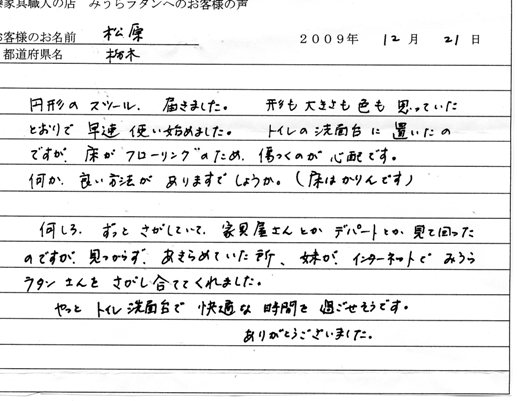 家具職人の店 みうらラタンへのお客様の声
お客様のお名前 松原 2009年 12月 21日
都道府県名 栃木
円形のスツール、届きました。 形も大きさも色も思っていた
とおりで早速使い始めました。 トイレの洗面台に置いたの
ですが、床がフローリングのため、傷つくのが心配です。
何か、良い方法がありますでしょうか。(床はかりんです)
何しろ、ずっとさがしていて、家具屋さんとかデパートとか見て回った
のですが、見つからず、あきらめていた所、妹が、インターネットでみうら
ラタンさんをさがし合ててくれました。
やっとトイレ洗面台で快適な時間を過ごせそうです。
ありがとうございました。